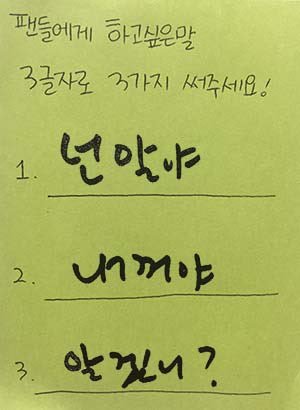 팬들에게 하고싶은말
3글자로 3가지 써주세요!
1. 넌 말야
2. 내꺼야
3. 알겠니?